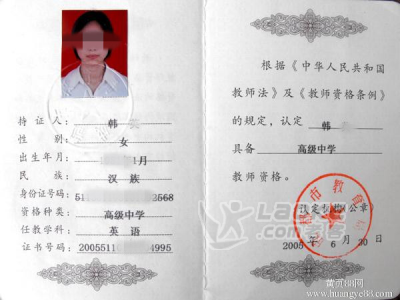 持证人： 韩
性别： 女
出生年月： 月
民族： 汉族
身份证号码： 51 2568
资格种类： 高级中学
任教学科： 英语
证书号码： 2005511 4995
根据《中华人民共和国
教师法》及《教师资格条例》
的规定，认定 韩
具备 高级中学
教师资格。
市教育
认定机关公章
2005年6月30日
黄页88网
http://www.huangye88.com